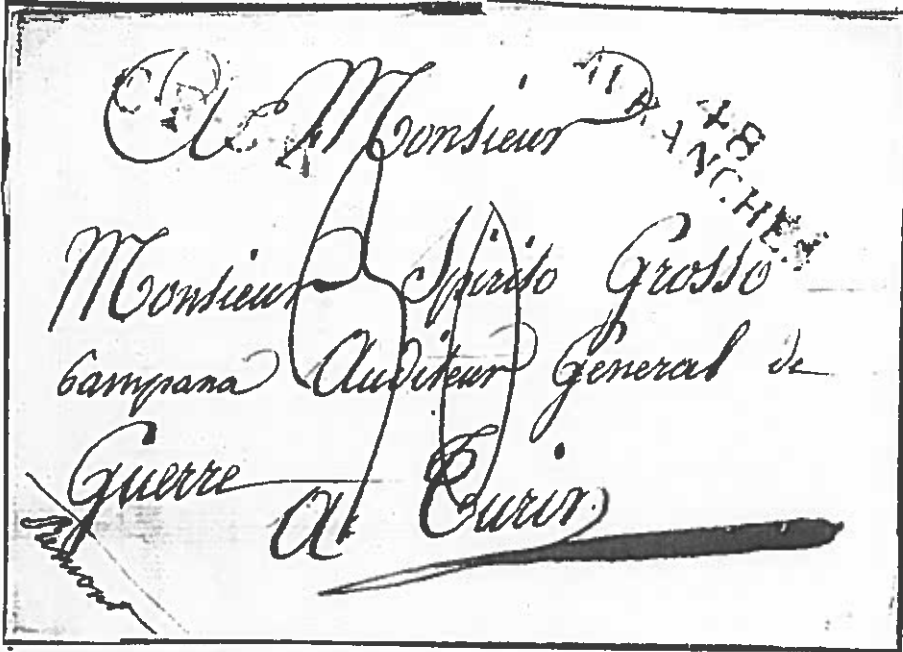 A Monsieur
48
AVRANCHES
Monsieur Spirito Grosso
Campana Auditeur Géneral de
Guerre
A Turin